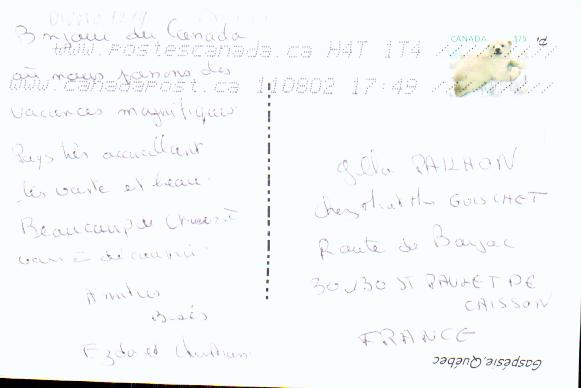 Bonjour du Canada
où nous passons des
vacances magnifiques
Pays très accueillant
très vaste et beau.
Beaucoup de
à découvrir
Amitiés
Bisés
et Christian
WWW.POSTESCANADA.CA H4T 1T4
WWW.CANADAPOST.CA 110802 17:49
CANADA 175
PAILHON
chez GUISCHET
Route de Barjac
30130 ST PAULET DE
CAISSON
FRANCE
Gaspésie, Québec